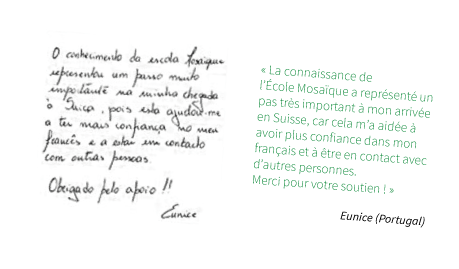 O conhecimento da escola Mosaïque
representou um passo muito
importante na minha chegada
à Suiça, pois esta ajudou-me
a ter mais confiança no meu
francês e a estar em contacto
com outras pessoas.
Obrigado pelo apoio !!
Eunice
« La connaissance de
l'École Mosaïque a représenté un
pas très important à mon arrivée
en Suisse, car cela m'a aidée à
avoir plus confiance dans mon
français et à être en contact avec
d'autres personnes.
Merci pour votre soutien ! »
Eunice (Portugal)